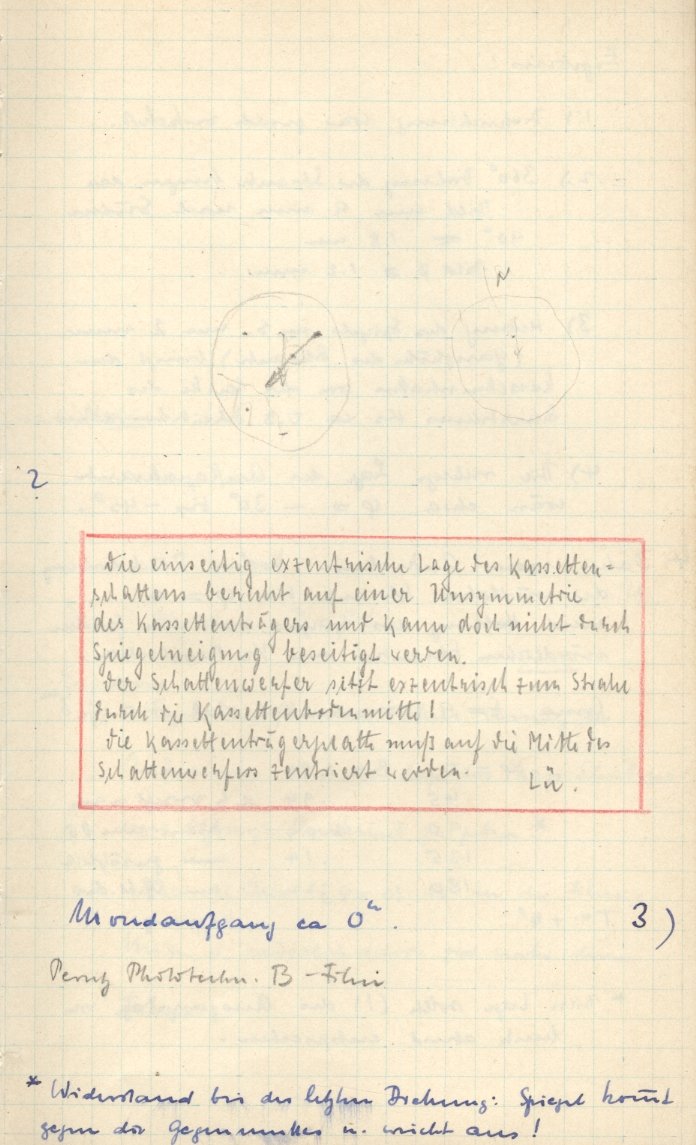 N
?
Die einseitig exzentrische Lage des Kassetten=
schattens beruht auf einer Unsymmetrie
des Kassettenträgers und kann doch nicht durch
Spiegelneigung beseitigt werden.
Der Schattenwerfer sitzt exzentrisch zum Strahl
durch die Kassettenbodenmitte!
Die Kassettenträgerplatte muß auf die Mitte des
Schattenwerfers zentriert werden.
Lü.
Mondaufgang ca 0ʰ. 3)
Perutz Phototechn. B-Film
* Widerstand bei der letzten Drehung: Spiegel kom̄t
gegen die Gegenmutter u. weicht aus!